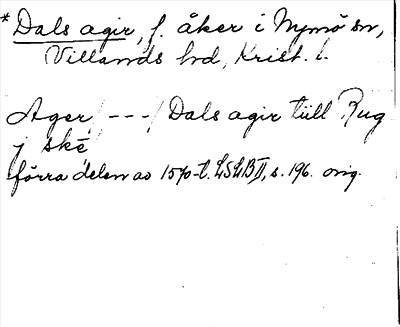 * Dals agir, f. åker i Nymö sn,
Villands hd, Krist. l.
Ager /---/ Dals agir tiill Rug
j ské
förra delen av 1570-t. LSLB II, s. 196. orig.